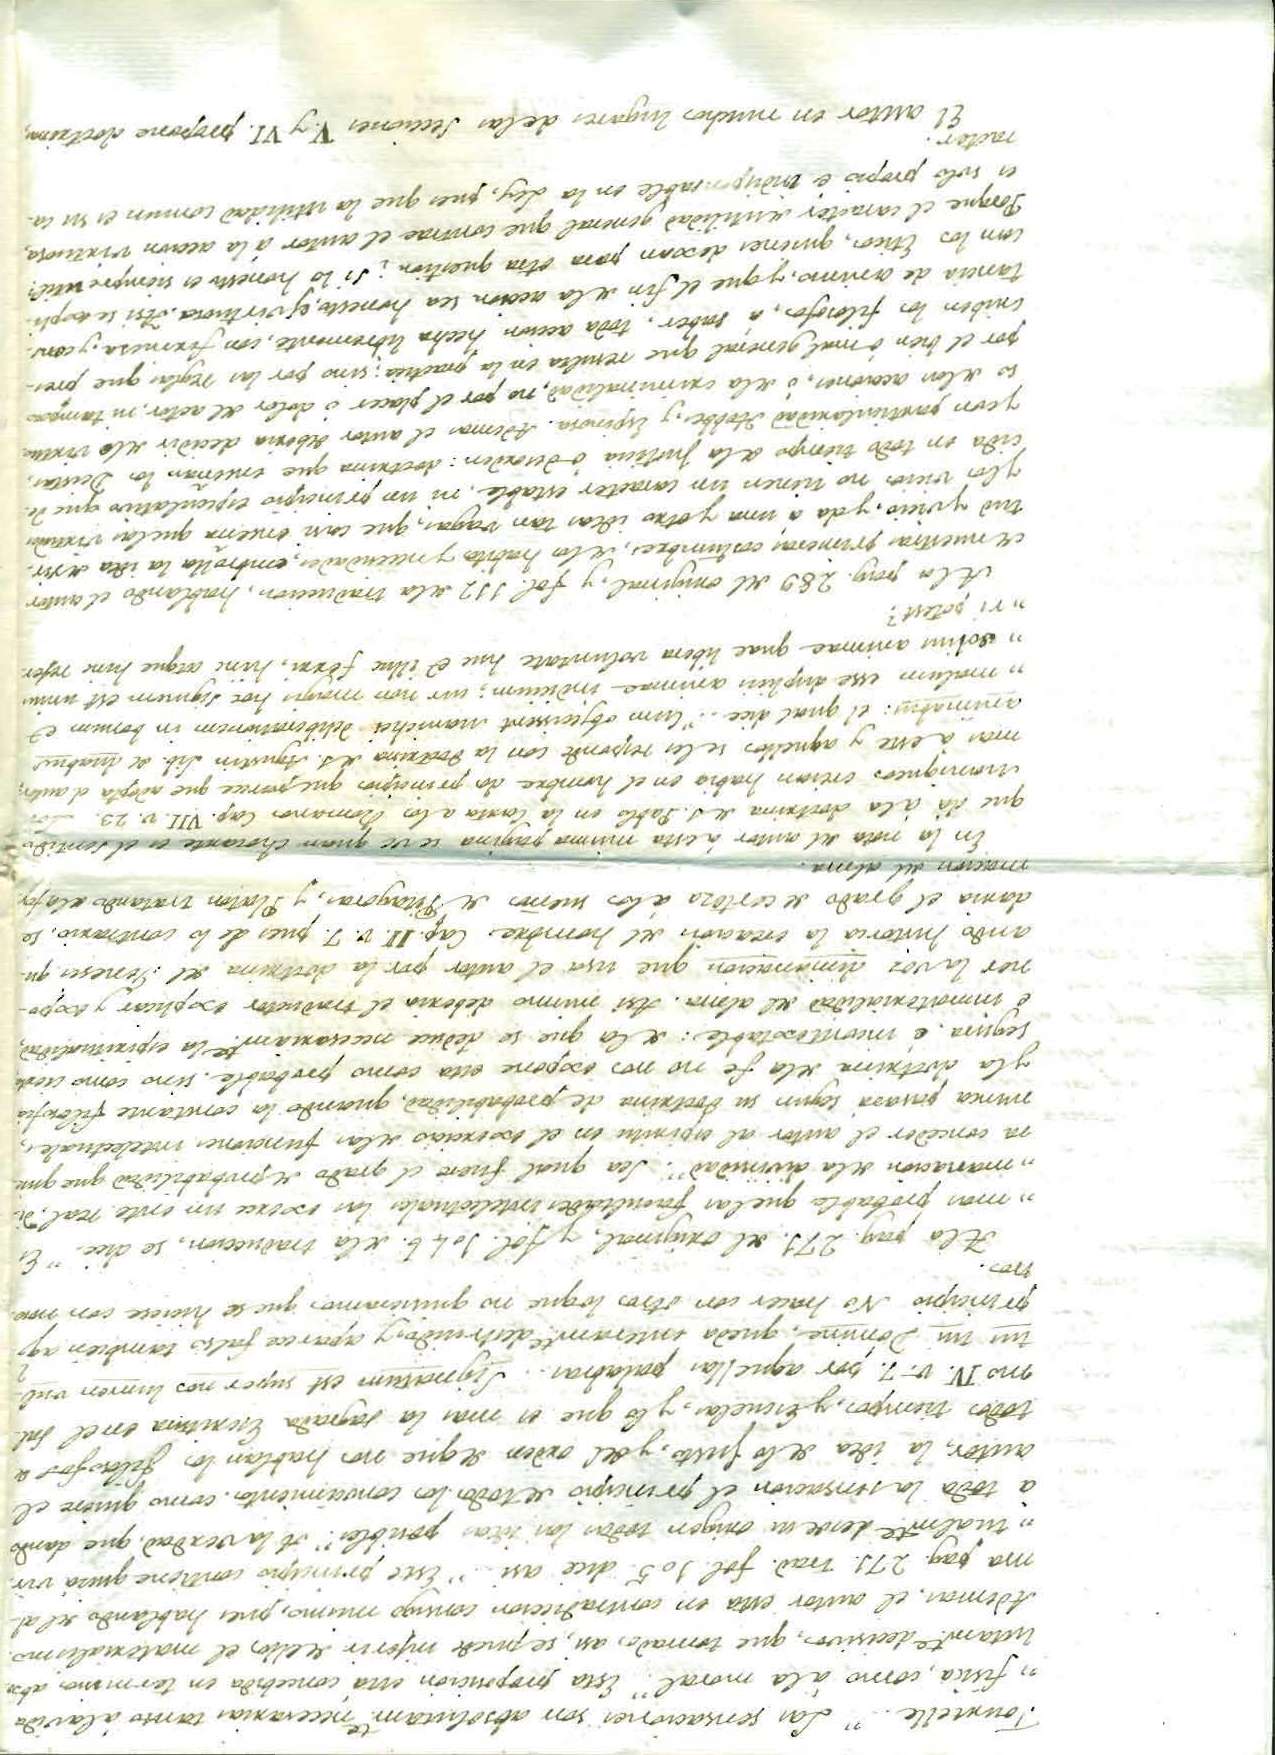 Tourtelle.. "Las sensaciones son absolutamte necesarias tanto á la vida
" fisica, como á la moral." Esta proposicion está concebida en terminos abso
lutamte decisivos, que tomados asi, se puede inferir de ellos el materialismo.
Ademas, el autor esta en contradiccion consigo mismo, pues hablando del al-
ma pag. 271. trad. fol. 105. dice asi "Este principio contiene quizá vir-
" tualmte desde su origen todas las ideas posibles." A la verdad, que dando
á toda la sensacion el principio de todos los conocimientos, como quiere el
autor, la idea de lo justo, y del orden de que nos hablan los filosofos de
todos tiempos, y Escuelas, y lo que es mas la sagrada Escritura en el Sal-
mo IV. v. 7. por aquellas palabras.. Signatum est super nos lumen vul-
tus tui Domine, queda enteramte destruido, y aparece falso tambien aql
principio No hacer con otros lo que no quisieramos que se hiciese con noso-
tros.
A la pag. 271. del original, y fol. 104 b. de la traduccion, se dice. "Es
" mas probable que las facultades intelectuales las exerce un ente real, di-
" manacion de la divinidad". Sea qual fuere el grado de probabilidad que quie
ra conceder el autor al espiritu en el exercicio de las funciones intelectuales,
nunca pasará segun su doctrina de probabilidad, quando la constante filosofia
y la doctrina de la fe no nos expone esta como probable sino como cierta,
segura, é incontextable: de la que se deduce necesariamte la espiritualidad,
é inmaterialidad del alma. Asi mismo deberia el traductor explicar y expo-
ner la voz dimanacion que usa el autor por la doctrina del Genesis qu-
ando historia la creacion del hombre. Cap. II. v. 7. pues de lo contrario, se
daria el grado de certeza á los sueños de Pitagoras, y Platon tratando de la for
macion del alma.
En la nota del autor á esta misma pagina se ve quan chocante es el sentido
que dá á la doctrina de S. Pablo en la Carta á los Romanos Cap. VII. v. 23. Los
Maniqueos creian habia en el hombre dos principios que parece que adopta el autor,
mas á este y aquellos se les responde con la doctrina de S. Agustin Lib. de duabus
animabus: el qual dice.. "Cum objecissent manichei deliberationem in bonum &
" malum esse duplicis animae indicium; cur non magis hoc signum est unius
" solius animae quae libera voluntate huc & illuc ferri, hinc atque hinc refer
" ri potest?
A la pag. 289 del original, y fol. 112 de la traduccion, hablando el autor
de nuestras primeras costumbres, de los habitos y necesidades, embrolla la idea de vir-
tud y vicio, y da á una y otro ideas tan vagas, que casi enseña que las virtudes
y los vicios no tienen un caracter estable, ni un principio especulativo que de-
cida en todo tiempo de la Justicia ó desorden: doctrina que enseñan los Deistas,
y con particularidad Hobbes, y Espinosa. Ademas el autor deberia decidir de lo virtuo
so de las acciones, ó de la criminalidad, no por el placer ó dolor del actor, ni tampoco
por el bien ó mal general que resulta en la practica; sino por las reglas que pres-
criben los filosofos, á saber, toda accion hecha libremente, con firmeza, y cons-
tancia de animo, y que el fin de la accion sea honesto, es virtuosa. Asi se expli-
can los Eticos, quienes dexan para otra question; Si lo honesto es siempre util?
Porque el caracter de utilidad general que contrae el autor á la accion virtuosa,
es solo propio é indispensable en la Ley, pues que la utilidad comun es su ca-
racter.
El autor en muchos lugares de las Secciones V. y VI. propone doctrinas,